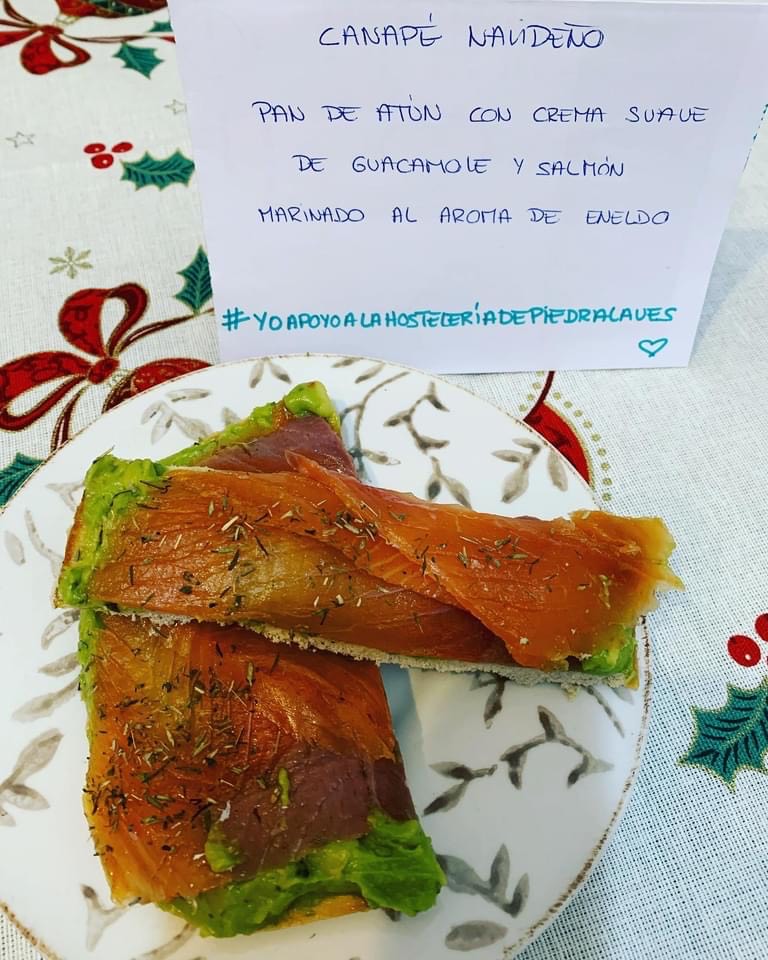 CANAPÉ NAVIDEÑO
PAN DE ATÚN CON CREMA SUAVE
DE GUACAMOLE Y SALMÓN
MARINADO AL AROMA DE ENELDO
#YOAPOYOALAHOSTELERÍADEPIEDRALAVES